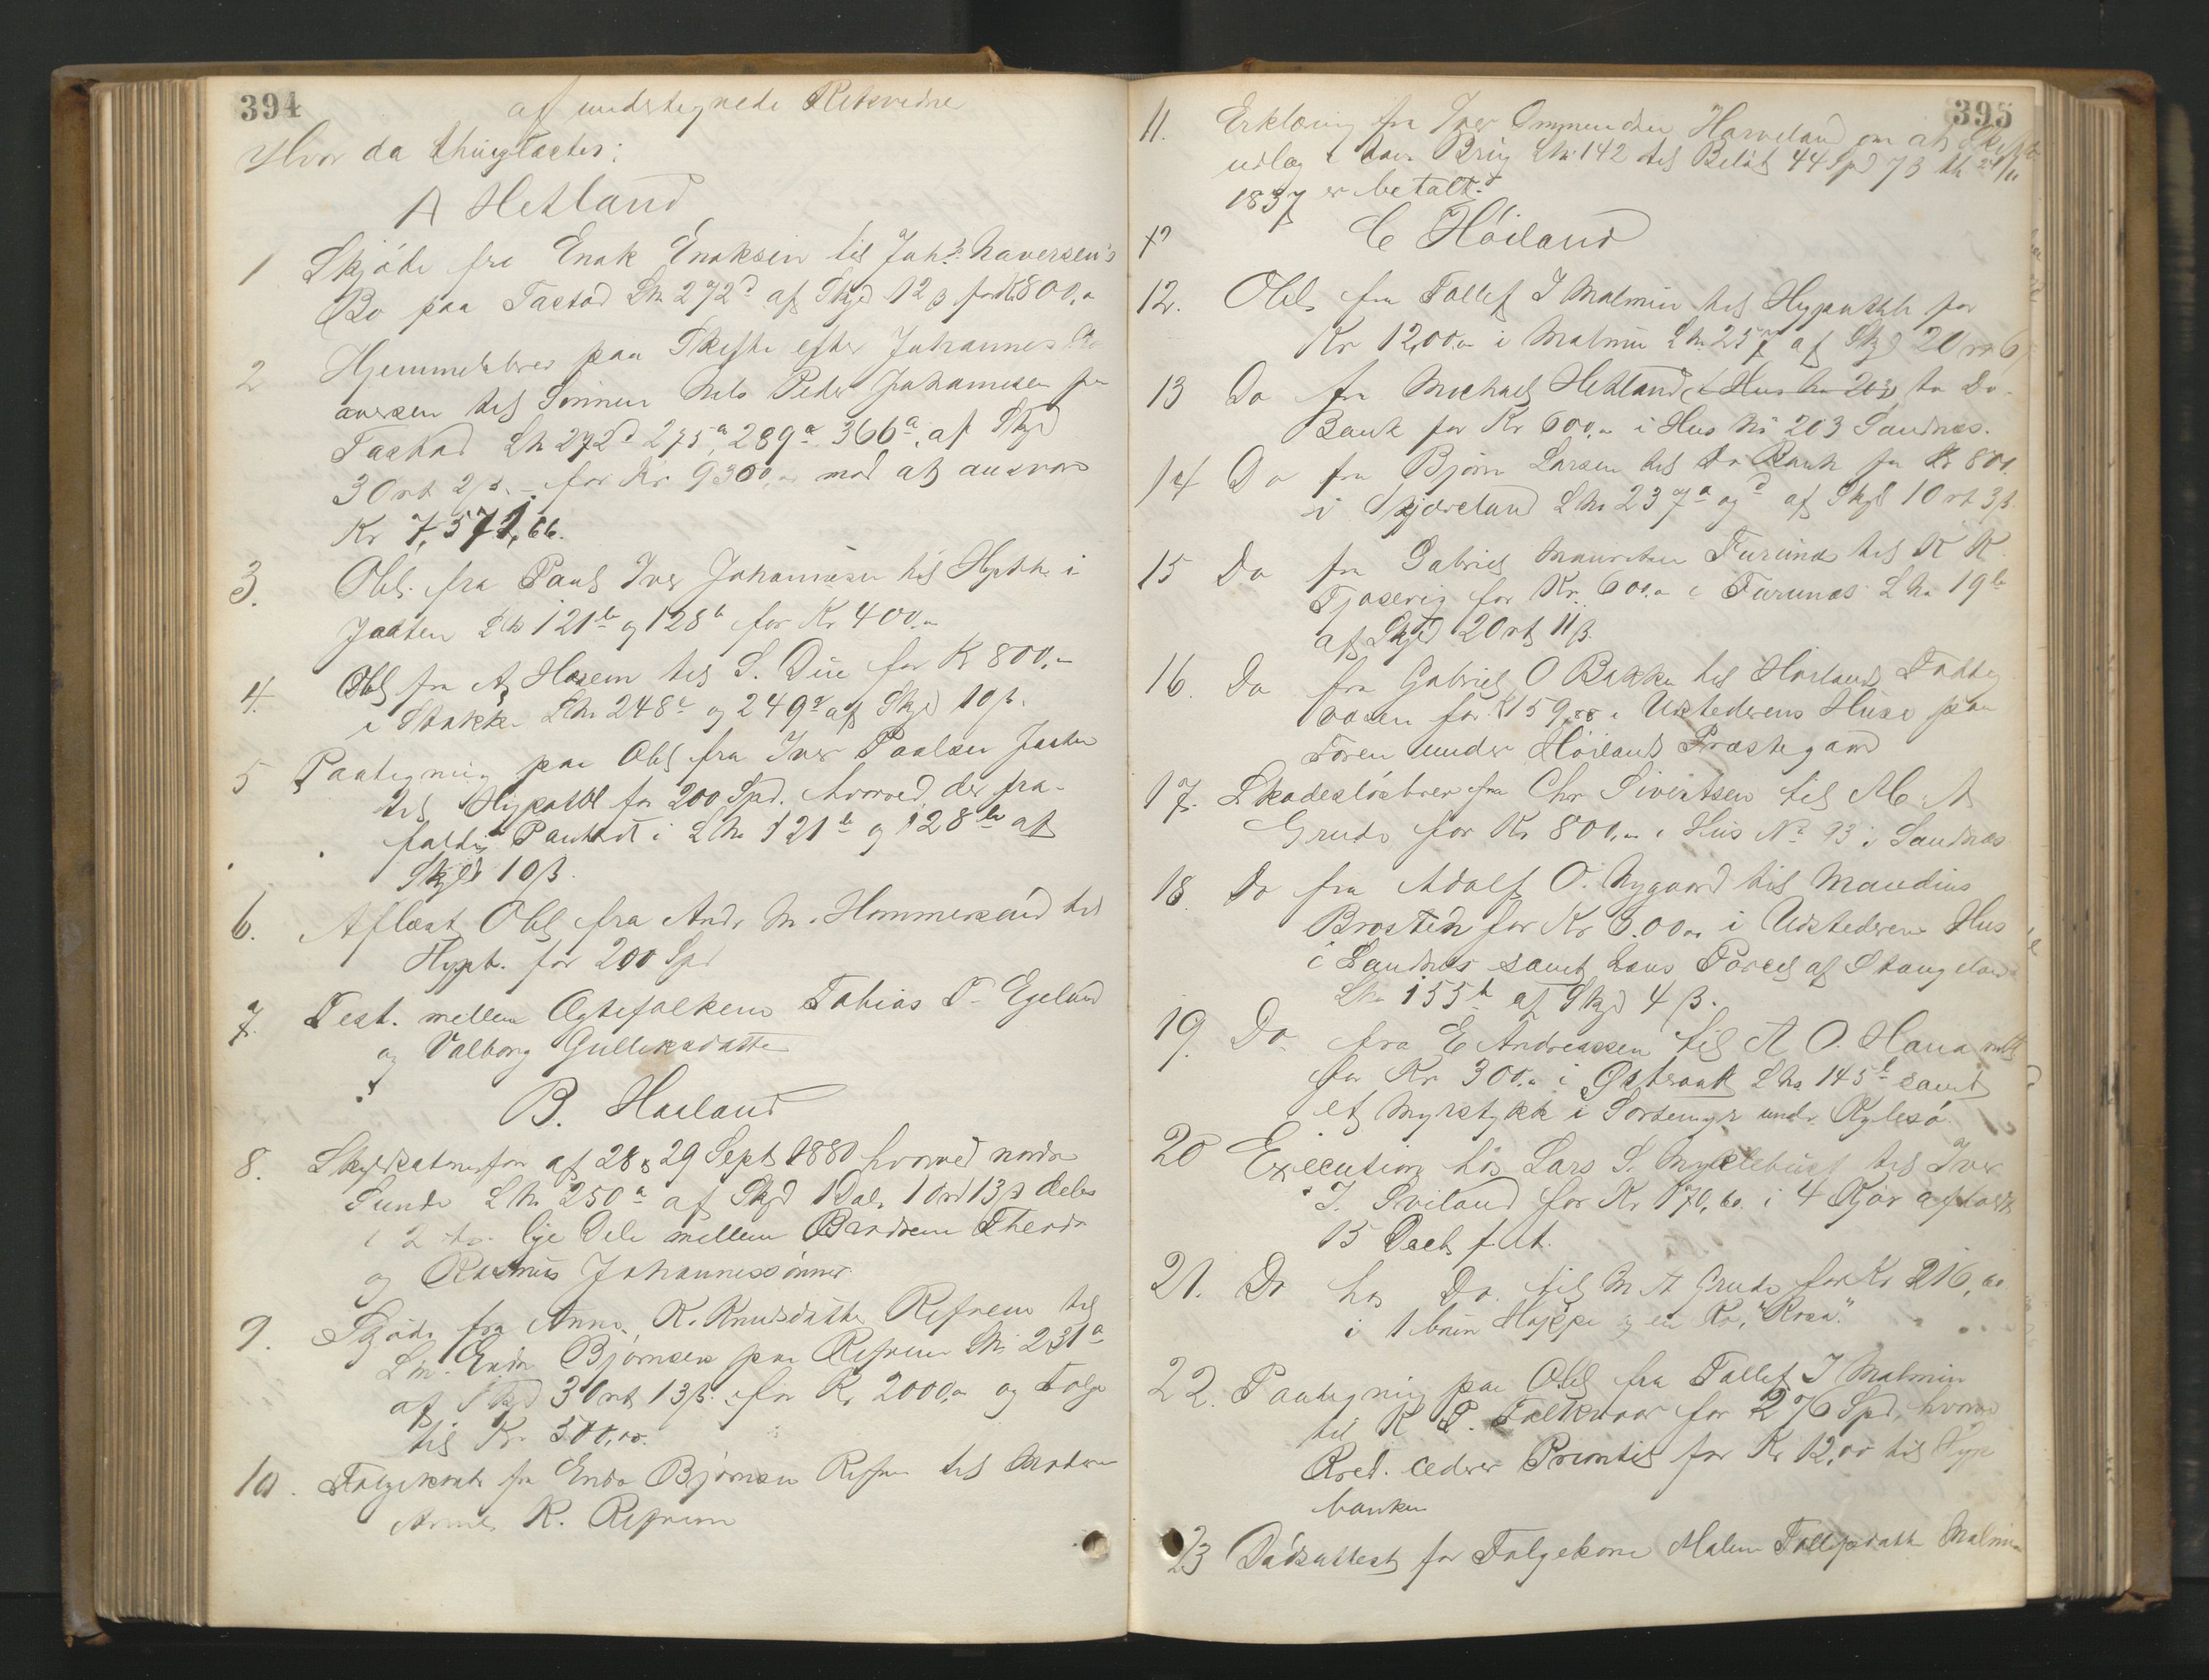 394
af undertegnede
Hvor da thinglæstes:
A Hetland
1 Skjöde fra Enok Enoksen til Johs Naversen's
Bo paa Tastad Lh 272d af Skyld 12 β for Kr 800,"
2 Hjemmelsbrev paa Skifte efter Johannes
aversen til Sönnen Nils Peder Johannesen paa
Tastad Lh 272d 275a, 289a 366a, af Skyld
3 Ort 2 β. – for Kr. 9300," mod at ansvare
Kr 7,571,66.
3. Obl. fra Paul Iver Johannesen til Hypthk i
Jaatten Lh 121b og 128b for Kr 400,"
4. Obl fra A Haaem til S. Due for K 800,"
i Stakke Lh 248c og 249a af Skyld 10 β.
5 Paategning paa Obl fra Iver Paalsen Jaatten
til Hypothk for 200 Spd. hvorved der fra-
faldes Panteret i Lh 121b og 128b af
Skyld 10 β.
6. Aflæst Obl fra Andr. M. Hommersand til
Hypt. for 200 Spd
7. Test. mellem Ægtefolkene Tobias T. Egeland
og Valborg Gulleksdatter
B. Haaland
8. Skyldsætnisfor af 28 & 29 Sept 1880 hvorved nordre
Sunde Lh 250a af Skyld 1 Dal. 1 Ort 13 β deles
i 2 lige Dele mellem Brödrene Thend
og Rasmus Johannessönner.
9. Skjöde fra Anne K. Knudsdatter Refnem til
Endre Björnsen paa Refnem Lh 231a
af Skyld 3 Ort 13 β. for Kr 2000," og Folge
til Kr. 500,00.
10. Folgekont fra Endre Björnsen Refnem til
Anne K. Refnem
395
11. Erklæring fra Iver Ommundsen Harveland om at Skifte
udlæg i Brug Lh. 142 til Beløb 44 Spd 73 24/11
1837 er betalt.
C Höiland
12. Obl fra Tollef I Malmin til Hypothk for
Kr 1200," i Malmin Lh. 257 af Skyld 2 Ort 6
13 Do fra Michael Hetland (i Hus No 203) til Do
Bank for Kr 600," i Hus No 203 Sandnæs.
14 Do fra Björn Larsen til Do Bank for Kr 800
i Skjæveland Lh 237a og d af Skyld 1 Ort 3 β.
15 Do fra Gabriel Mauritsen Furenæs til K K
Tjosevig for Kr. 600," i Furenæs Lh 19b
af Skyld 2 Ort 11 β.
16. Do fra Gabriel O Bakke til Höilands Fattig
væsen for K 159,88 i Udstederens Huse paa
Foren under Höilands Præstegaard
17. Skadeslösbrev fra Chr Sivertsen til M. A
Grude for Kr 800," i Hus No 93 i Sandnæs
18. Do fra Adolf O. Nygaard til Maudius
Brosten for Kr 600" i Udstederens Hus
i Sandnæs samt hans Parcel af Stangeland
Lh. 155b af Skyld 4 β.
19. Do. fra E Andreassen til A O. Hana
for Kr 300," i Østraat Lh 145b samt
et Myrstykke i Sortemyr under
20 Execution hos Lars S. Myklebust til Iver
I. Sviland for Kr 170,60. i 4 Kjør afholdt
15 Decb f. A.
21. Do hos Do. til M A Grude for Kr 216,60
i 1 brun Hoppe og en Ko, "Rosa".
22. Paategning paa Obl fra Tollef I Malmin
til K P. for 276 Spd, hvorved
Kred. cederer Prioritet for Kr 12,00 til Hyp
banken
23 Dödsattest for Folgekone Malene Tollefsdatter Malmin